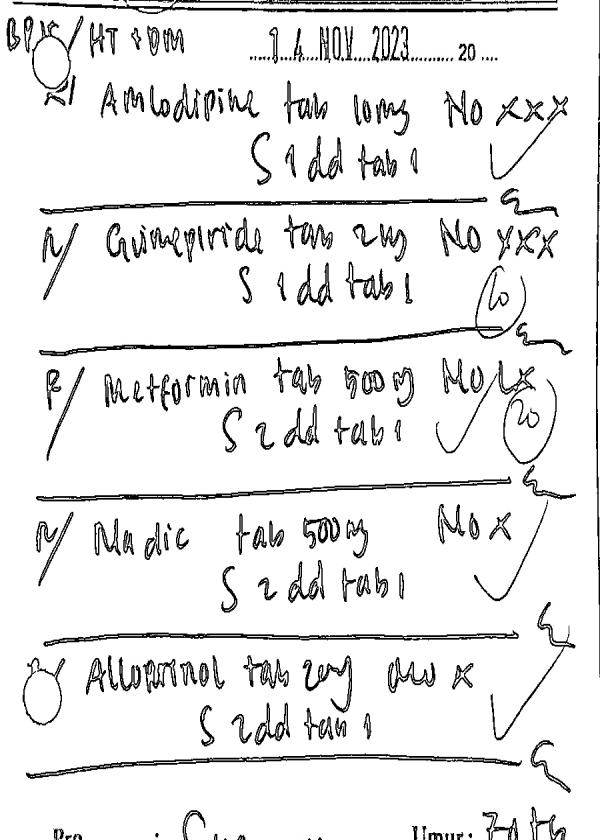 BPJS / HT + DM 14 NOV 2023 20
Amlodipine tab 10mg No xxx
S 1 dd tab 1
R/ Glimepiride tab 2mg No xxx
S 1 dd tab 1
10
R/ Metformin tab 500mg No Lx
S 2 dd tab 1
20
R/ Na dic tab 500mg No x
S 2 dd tab 1
Allopurinol tab No x
S 2dd tab 1
Pro : Umur :